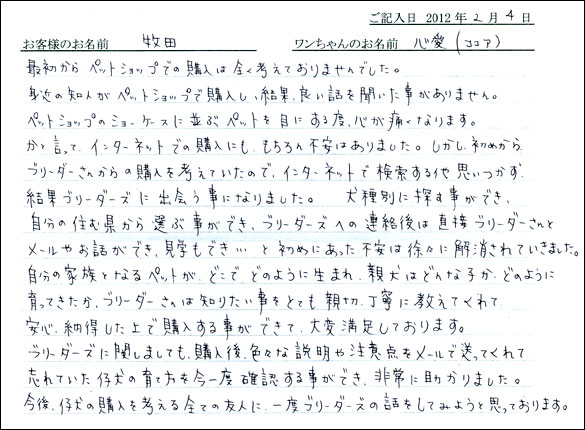 ご記入日 2012年2月4日
お客様のお名前 牧田 ワンちゃんのお名前 心愛(ココア)
最初からペットショップでの購入は全く考えておりませんでした。
身近の知人がペットショップで購入し、結果、良い話を聞いた事がありません。
ペットショップのショーケースに並ぶペットを目にする度、心が痛くなります。
かと言って、インターネットでの購入にも、もちろん不安はありました。しかし、初めから
ブリーダーさんからの購入を考えていたので、インターネットで検索する他思いつかず、
結果ブリーダーズに出会う事になりました。 犬種別に探す事ができ、
自分の住む県から選ぶ事ができ、ブリーダーズへの連絡後は直接ブリーダーさんと
メールやお話ができ、見学もでき…と初めにあった不安は徐々に解消されていきました。
自分の家族となるペットが、どこで、どのように生まれ、親犬はどんな子か、どのように
育ってきたか、ブリーダーさんは知りたい事をとても親切、丁寧に教えてくれて
安心、納得した上で購入する事ができて、大変満足しております。
ブリーダーズに関しましても、購入後、色々な説明や注意点をメールで送ってくれて
忘れていた仔犬の育て方を今一度確認する事ができ、非常に助かりました。
今後、仔犬の購入を考える全ての友人に、一度ブリーダーズの話をしてみようと思っております。